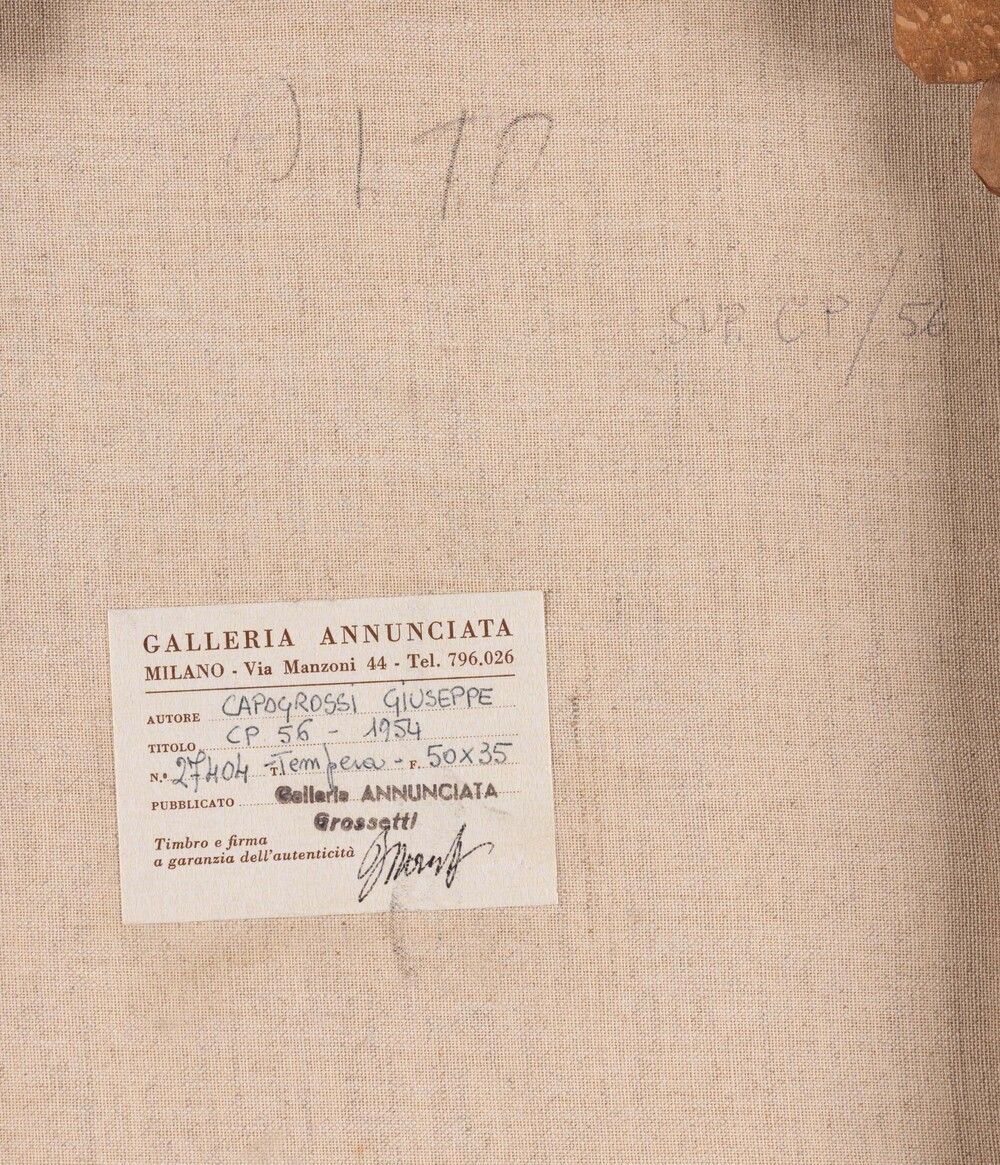 CP/56
GALLERIA ANNUNCIATA
MILANO - Via Manzoni 44 - Tel. 796.026
AUTORE CAPOGROSSI GIUSEPPE
TITOLO CP 56 - 1954
N.º 27404 T. Tempera - F. 50x35
PUBBLICATO Galleria ANNUNCIATA
Grossetti
Timbro e firma
a garanzia dell'autenticità